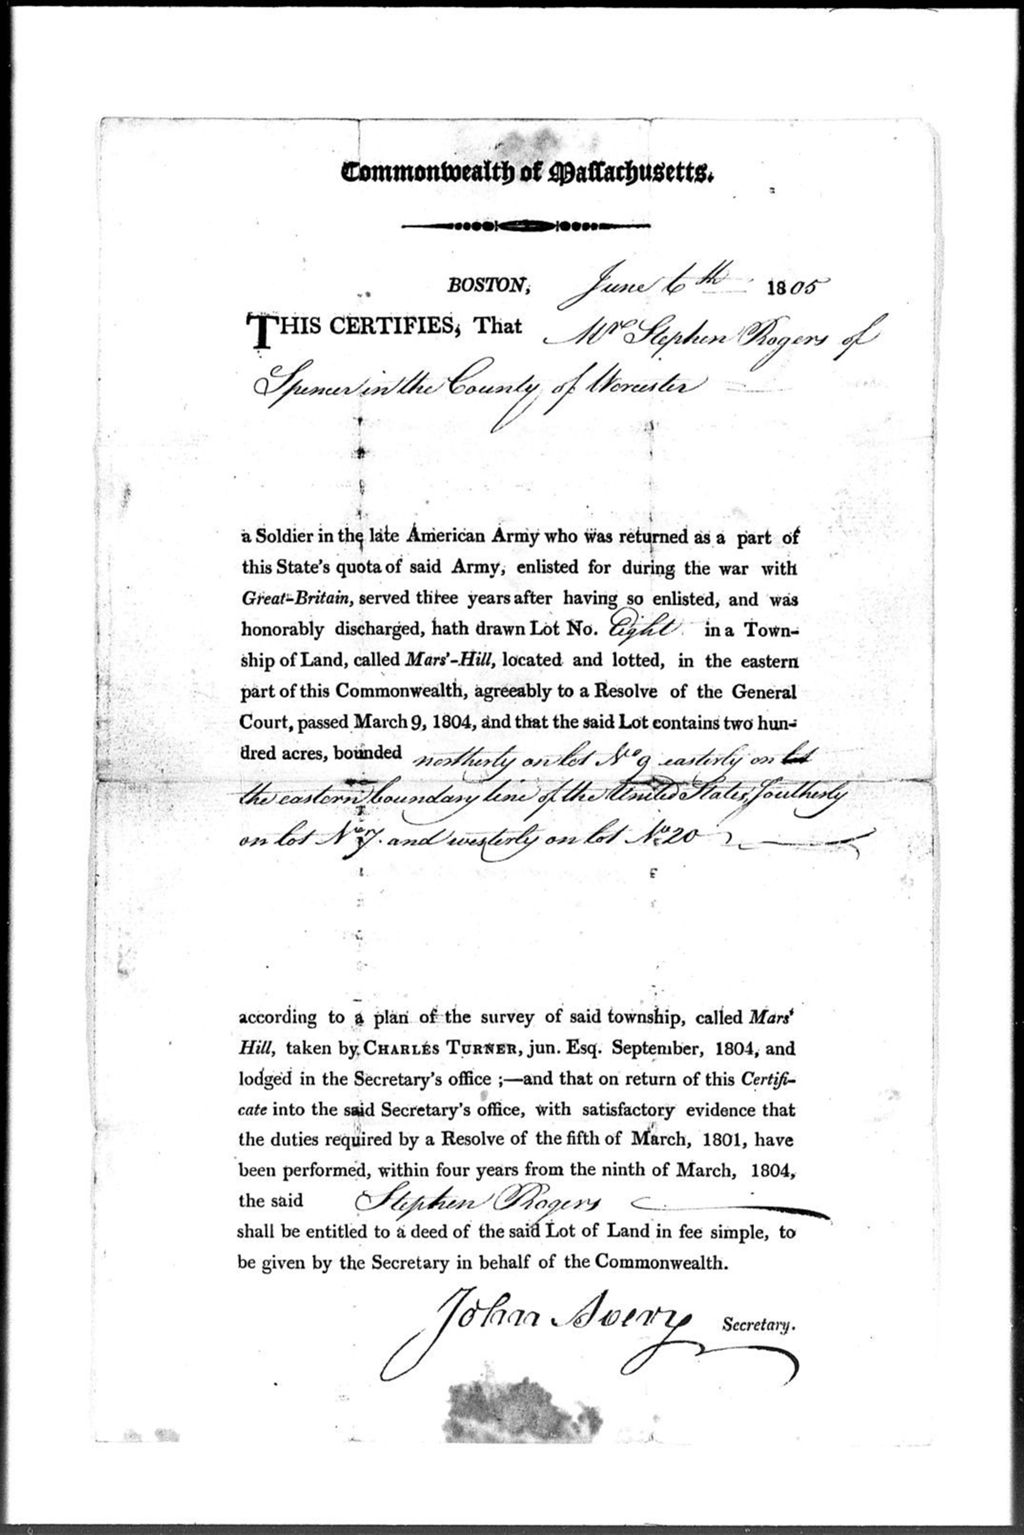 Commonwealth of Massachusetts.
BOSTON, June 6th 1805
THIS CERTIFIES, That Mr Stephen Rogers of
Spencer in the County of Worcester
a Soldier in the late American Army who was returned as a part of
this State's quota of said Army, enlisted for during the war with
Great-Britain, served three years after having so enlisted, and was
honorably discharged, hath drawn Lot No. Eight in a Town-
ship of Land, called Mars'-Hill, located and lotted, in the eastern
part of this Commonwealth, agreeably to a Resolve of the General
Court, passed March 9, 1804, and that the said Lot contains two hun-
dred acres, bounded northerly on lot No 9 easterly on lot
the eastern boundary line of the United States, Southerly
on lot No 7. and westerly on lot No 20
according to a plan of the survey of said township, called Mars'
Hill, taken by CHARLES TURNER, jun. Esq. September, 1804, and
lodged in the Secretary's office ;—and that on return of this Certifi-
cate into the said Secretary's office, with satisfactory evidence that
the duties required by a Resolve of the fifth of March, 1801, have
been performed, within four years from the ninth of March, 1804,
the said Stephen Rogers
shall be entitled to a deed of the said Lot of Land in fee simple, to
be given by the Secretary in behalf of the Commonwealth.
John Avery Secretary.